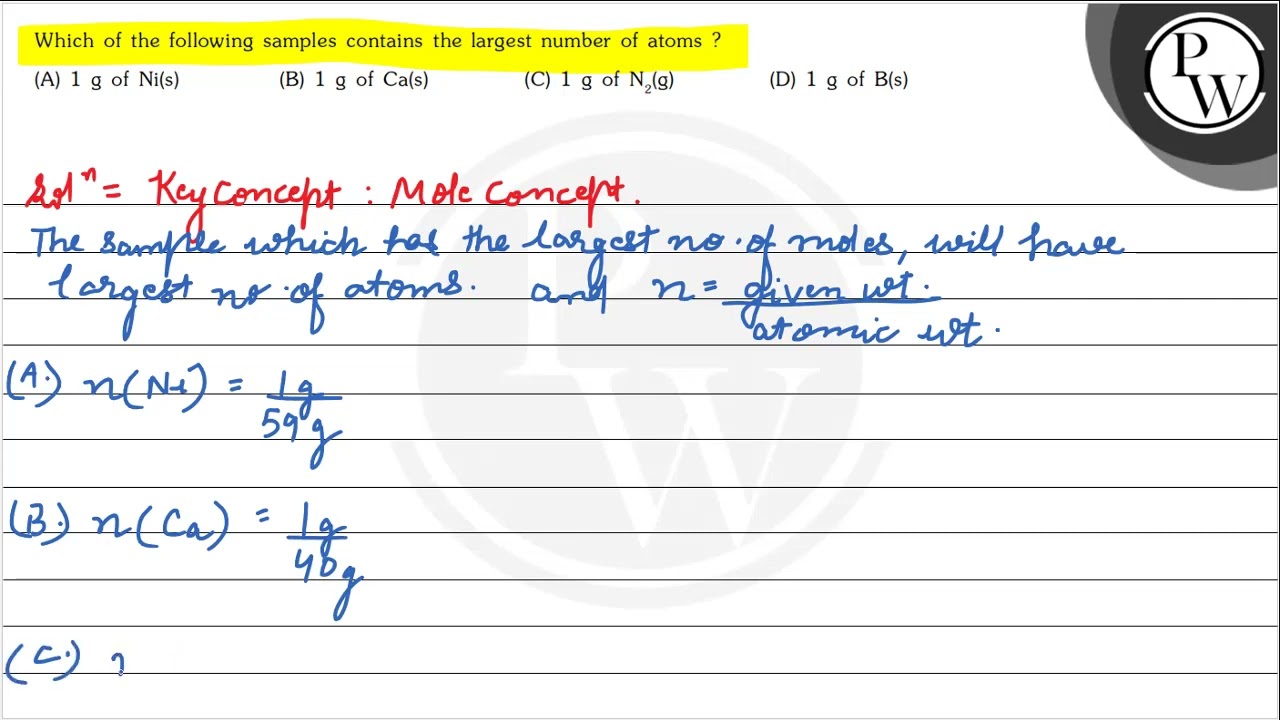 Which of the following samples contains the largest number of atoms ?
(A) 1 g of Ni(s) (B) 1 g of Ca(s) (C) 1 g of N₂(g) (D) 1 g of B(s)
P
W
Solⁿ = Key Concept : Mole Concept.
The sample which has the largest no. of moles, will have
largest no. of atoms. and n = given wt.
atomic wt.
(A.) n(Ni) = 1g
59 g
(B.) n(Ca) = 1g
40g
(C.)